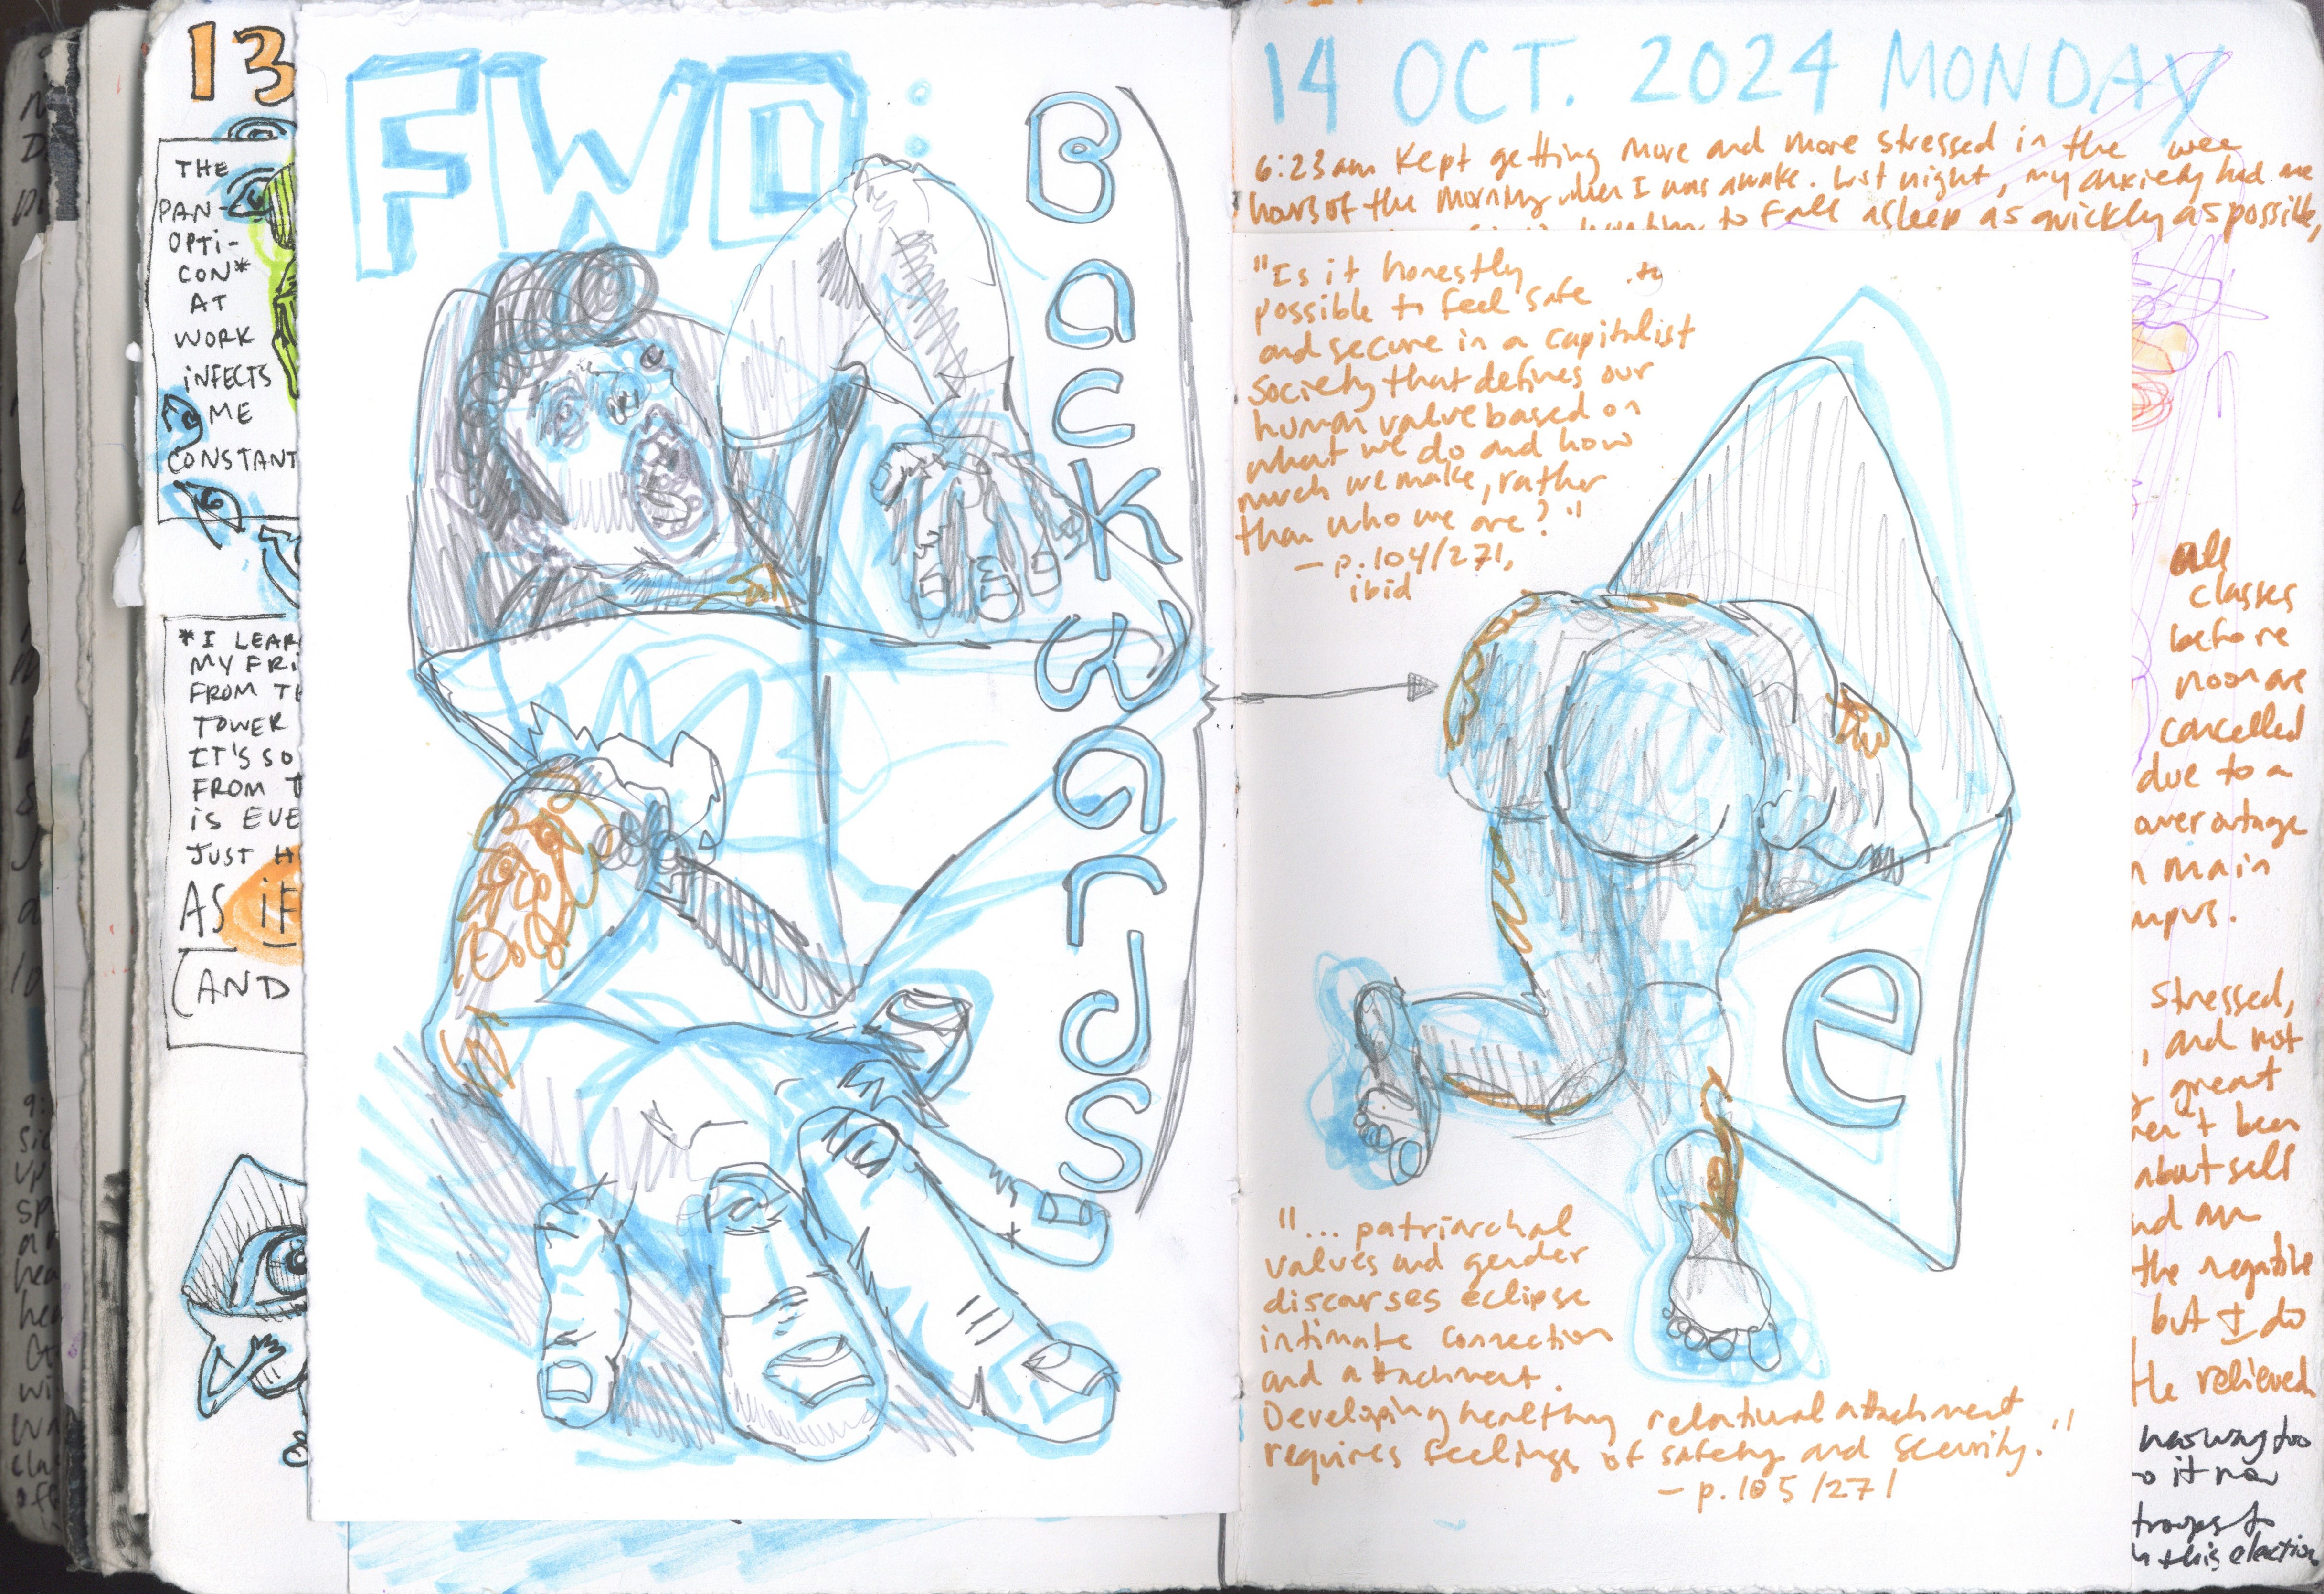 13
THE
PAN-
OPTI-
CON*
AT
WORK
iNFECTS
ME
CONSTANT
*I LEAR
MY FRI
FROM TH
TOWER
IT'S SO
FROM T
iS EVE
JUST H
AS iF
(AND
FWD:
Backwards
14 OCT. 2024 MONDAY
6:23am Kept getting more and more stressed in the wee
hours of the morning when I was awake. Last night, my anxiety had me
to fall asleep as quickly as possible,
"Is it honestly
possible to feel safe
and secure in a capitalist
society that defines our
human value based on
what we do and how
much we make, rather
than who we are?"
— p.104/271,
ibid
e
"... patriarchal
values and gender
discourses eclipse
intimate connection
and attachment.
Developing healthy relational attachment
requires feelings of safety and security."
— p.105/271
all
classes
before
noon are
cancelled
due to a
ower outage
n main
mpus.
stressed,
, and not
great
n't been
about self
nd am
the negative
but I do
relieved
having to
o it now
troops to
this election